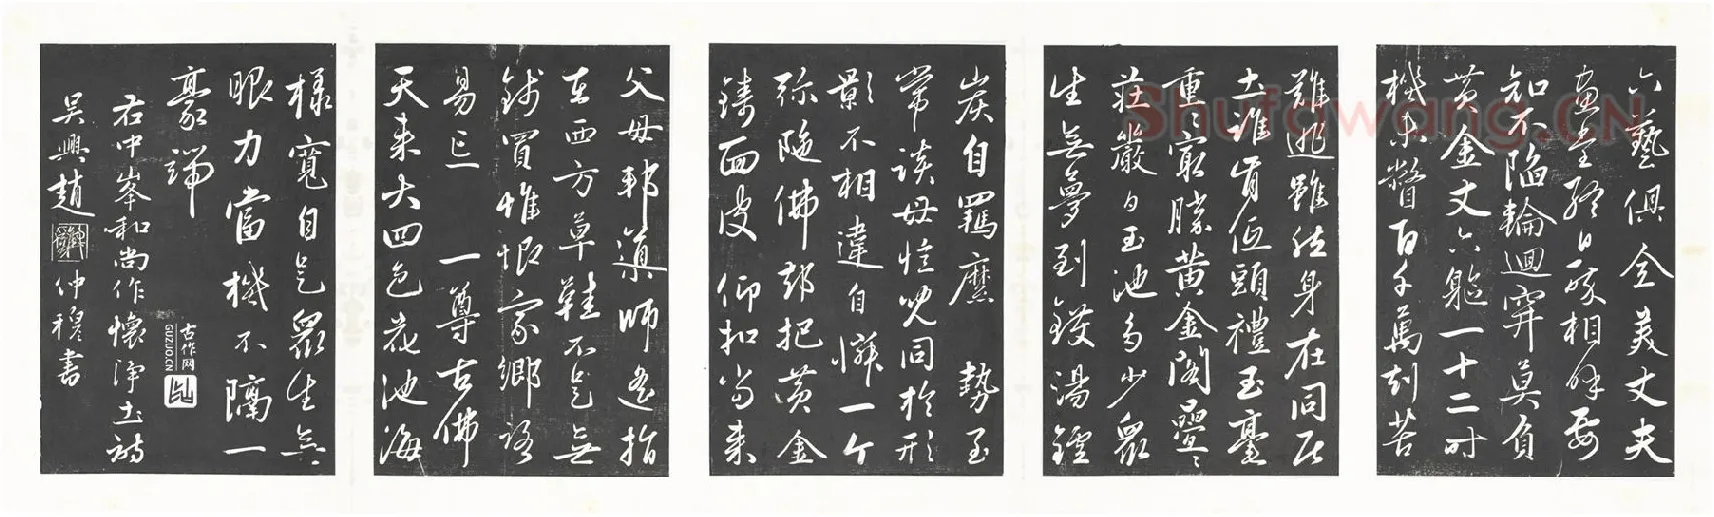 六藝俱全美丈夫
畫堂終日相要
知不陷輪迴穽莫負
黃金丈六軀一十二时
機未瞥百千萬刦苦
難逃雖然身在同居
土誰肯低頭禮玉毫
重重最勝黃金閣疊疊
莊嚴白玉池多少眾
生無夢到鑊湯鑪
炭自羈縻 勢至
常談母憶兒同於形
影不相違自憐一个
弥陁佛却把黃金
鑄面皮 仰扣當來
父母邦道師遙指
在西方草鞋不是無
錢買惟恨家鄉路
易忘 一尊古佛
天来大四色花池海
樣寬自是眾生無
眼力當機不隔一
毫端
右中峯和尚作懷淨土詩
吳興趙仲穆書
古作网
GUZUO.CN
Shufawang.CN